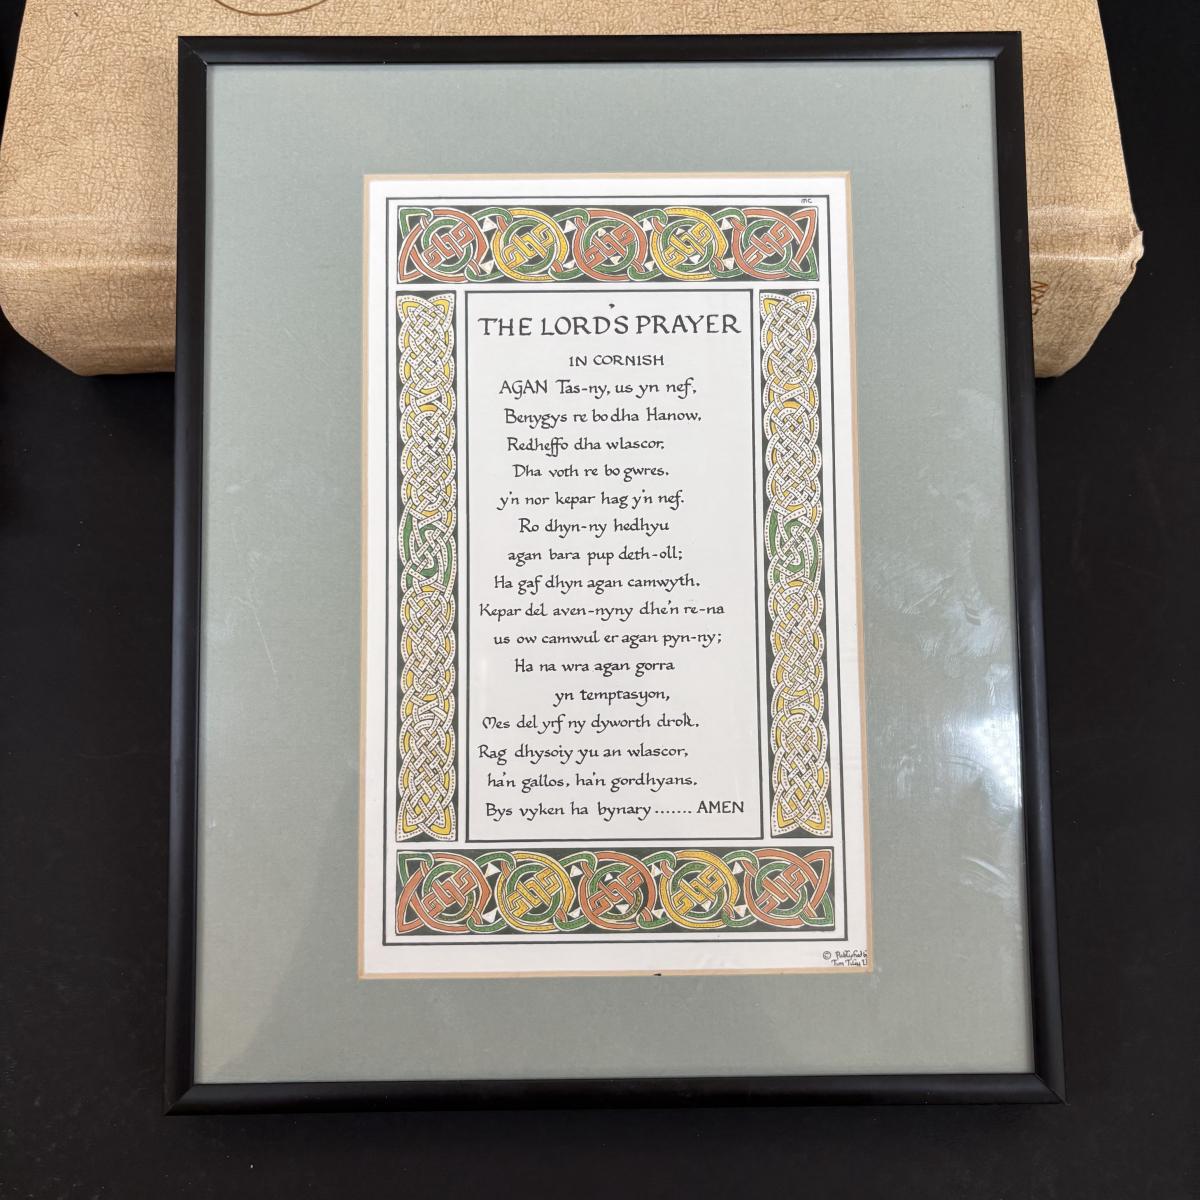 MC
THE LORD'S PRAYER
IN CORNISH
AGAN Tas-ny, us yn nef,
Benygys re bo dha Hanow,
Redheffo dha wlascor,
Dha voth re bo gwres,
y'n nor kepar hag y'n nef.
Ro dhyn-ny hedhyu
agan bara pup deth-oll;
Ha gaf dhyn agan camwyth,
Kepar del aven-nyny dhe'n re-na
us ow camwul er agan pyn-ny;
Ha na wra agan gorra
yn temptasyon,
Mes delyrf ny dyworth drok,
Rag dhysoiy yu an wlascor,
ha'n gallos, ha'n gordhyans,
Bys vyken ha bynary ....... AMEN
©
Tim